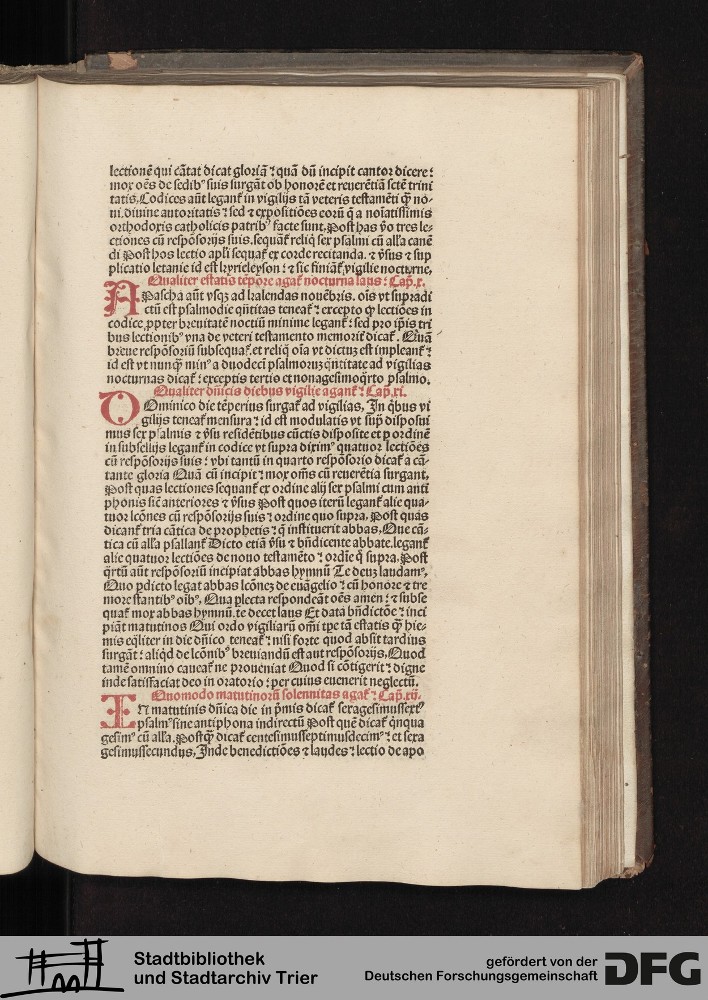 lectionē qui cātat dicat gloriā ⁊ quā dū incipit cantor dicere⁊
mox oēs de sedibꝰ suis surgāt ob honorē et reuerētiā sctē trini
tatis, Codices aūt legant̄ in vigilijs tā veteris testamēti q̄ꝫ no-
ui. diuine autoritatis ⁊ sed ⁊ expositiōes eorū q̄ a noīatissimis
orthodoxis catholicis patribꝰ facte sunt. Post has v̄o tres le-
ctiones cū respōsorijs suis. sequāt̄ reliq̄ sex psalmi cū all'a canē
di Post hos lectio apl'i sequat̄ ex corde recitanda. ⁊ v̄sus ⁊ sup
plicatio letanie id est kyrieleyson ⁊ ⁊ sic finiāt̄ vigilie nocturne,
Qualiter estatis tēpore agat̄ nocturna laus ⁊ Cap̄. x.
A Pascha aūt vsqꝫ ad kalendas nouēbris. oīs vt supradi
ctū est psalmodie q̄ntitas teneat̄ ⁊ excepto q̄ lectiōes in
codice, ꝓpter breuitatē noctiū minime legant̄ ⁊ sed pro ip̄is tri
bus lectionibꝰ vna de veteri testamento memorīt dicat̄. Quā
breue respōsoriū subsequat̄. et reliq̄ oīa vt dictuꝫ est impleant̄ ⁊
id est vt nunq̄ minꝰ a duodecī psalmoruꝫ q̄ntitate ad vigilias
nocturnas dicat̄ ⁊ exceptis tertio et nonagesimoq̄rto psalmo.
Qualiter dn̄icis diebus vigilie agant̄ ⁊ Cap̄. xi.
DOminico die tēperius surgat̄ ad vigilias, In q̄bus vi
gilijs teneat̄ mensura ⁊ id est modulatis vt sup̄ disposui
mus sex psalmis ⁊ v̄su residētibus cūctis disposite et ꝑ ordinē
in subsellijs legant̄ in codice vt supra diximꝰ quatuor lectiōes
cū respōsorijs suis ⁊ vbi tantū in quarto respōsorio dicat̄ a cā-
tante gloria Quā cū incipit ⁊ mox om̄s cū reuerētia surgant,
Post quas lectiones sequant̄ ex ordine alij sex psalmi cum anti
phonis sic̄ anteriores ⁊ v̄sus Post quos iterū legant̄ alie qua-
tuor lcōnes cū respōsorijs suis ⁊ ordine quo supra, Post quas
dicant̄ tria cātica de prophetis ⁊ q̄ instituerit abbas, Que cā-
tica cū all'a psallant̄ Dicto etiā v̄su ⁊ bn̄dicente abbate. legant̄
alie quatuor lectiōes de nouo testamēto ⁊ ordīe q̄ supra. Post
q̄rtū aūt respōsoriū incipiat abbas hymnū Te deuꝫ laudamꝰ,
Quo ꝑdicto legat abbas lcōneꝫ de euāgelio ⁊ cū honore ⁊ tre
more stantibꝰ oībꝰ, Qua ꝑlecta respondeāt oēs amen ⁊ ⁊ subse
quat̄ mox abbas hymnū. te decet laus Et data bn̄dictōe ⁊ inci
piāt matutinos Qui ordo vigiliarū om̄i tp̄e tā estatis q̄ꝫ hie-
mis eq̄liter in die dn̄ico teneat̄ ⁊ nisi forte quod absit tardius
surgāt ⁊ aliq̄d de lcōnibꝰ breuiandū est aut respōsorijs, Quod
tamē omnino caueat̄ ne proueniat Quod si cōtigerit ⁊ digne
inde satisfaciat deo in oratorio ⁊ per cuius euenerit neglectū.
Quomodo matutinorū solennitas agat̄ ⁊ Cap̄. xij.
IN matutinis dn̄ica die in p̄mis dicat̄ sexagesimussextꝰ
psalmꝰ sine antiphona indirectū Post quē dicat̄ q̄nqua
gesimꝰ cū all'a. Postq̄ dicat̄ centesimusseptimusdecimꝰ ⁊ et sexa
gesimussecundus, Inde benedictiōes ⁊ laudes ⁊ lectio de apo
Stadtbibliothek
und Stadtarchiv Trier
gefördert von der
Deutschen Forschungsgemeinschaft
DFG